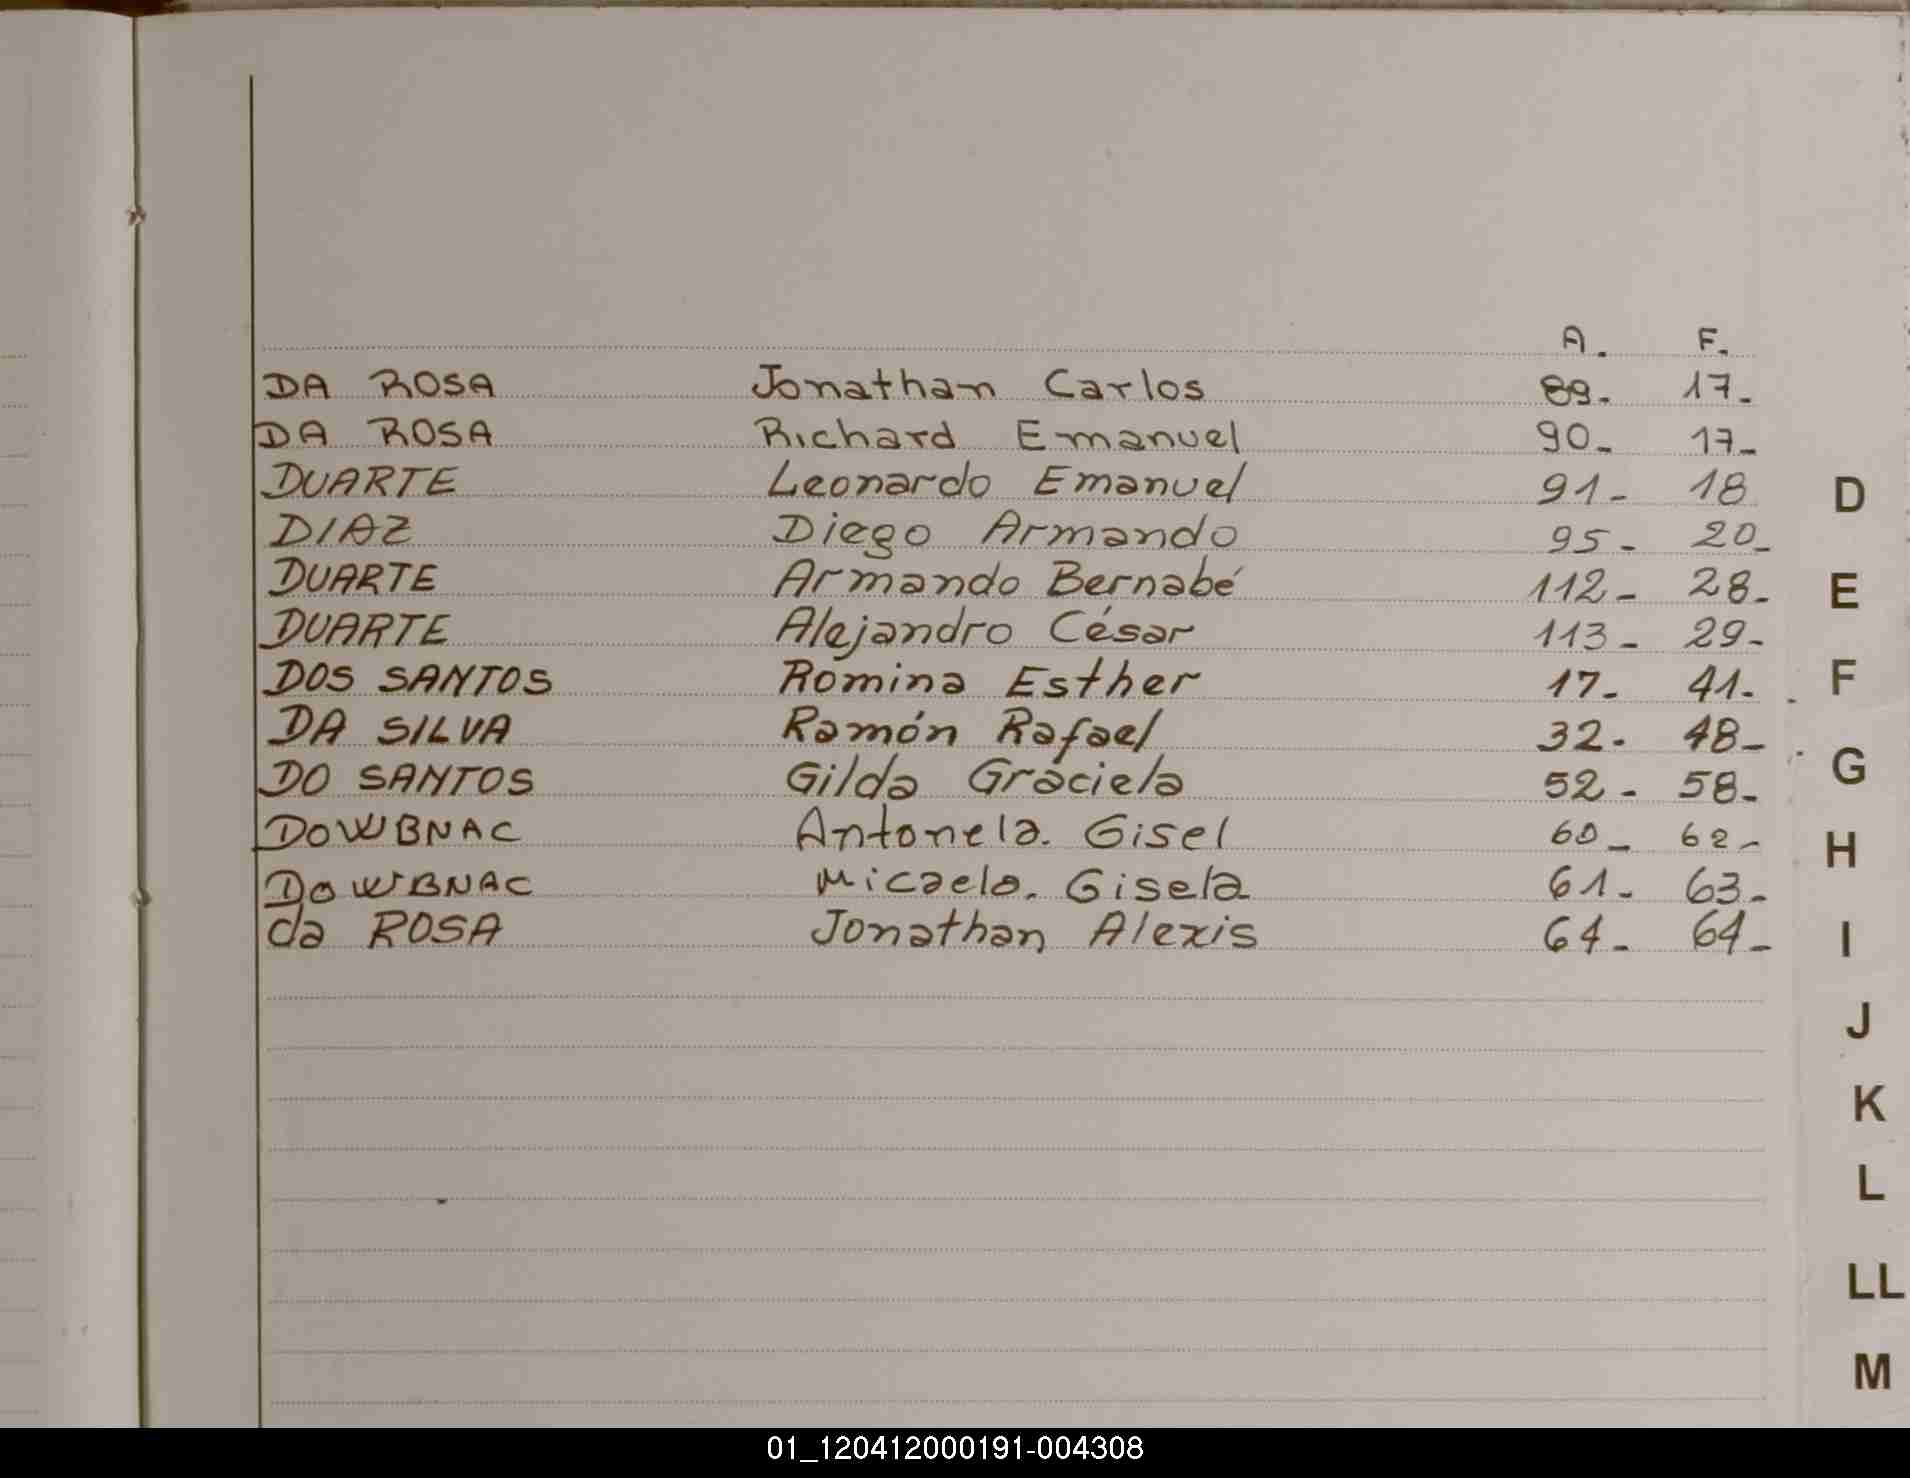 A. F.
DA ROSA Jonathan Carlos 89- 17-
DA ROSA Richard Emanuel 90- 17-
DUARTE Leonardo Emanuel 91- 18
DIAZ Diego Armando 95- 20-
DUARTE Armando Bernabé 112- 28-
DUARTE Alejandro César 113- 29-
DOS SANTOS Romina Esther 17- 41-
DA SILVA Ramón Rafael 32- 48-
DO SANTOS Gilda Graciela 52- 58-
DOWBNAC Antonela. Gisel 60- 62-
DOWBNAC Micaela. Gisela 61- 63-
da ROSA Jonathan Alexis 64- 64-
D
E
F
G
H
I
J
K
L
LL
M
01_120412000191-004308